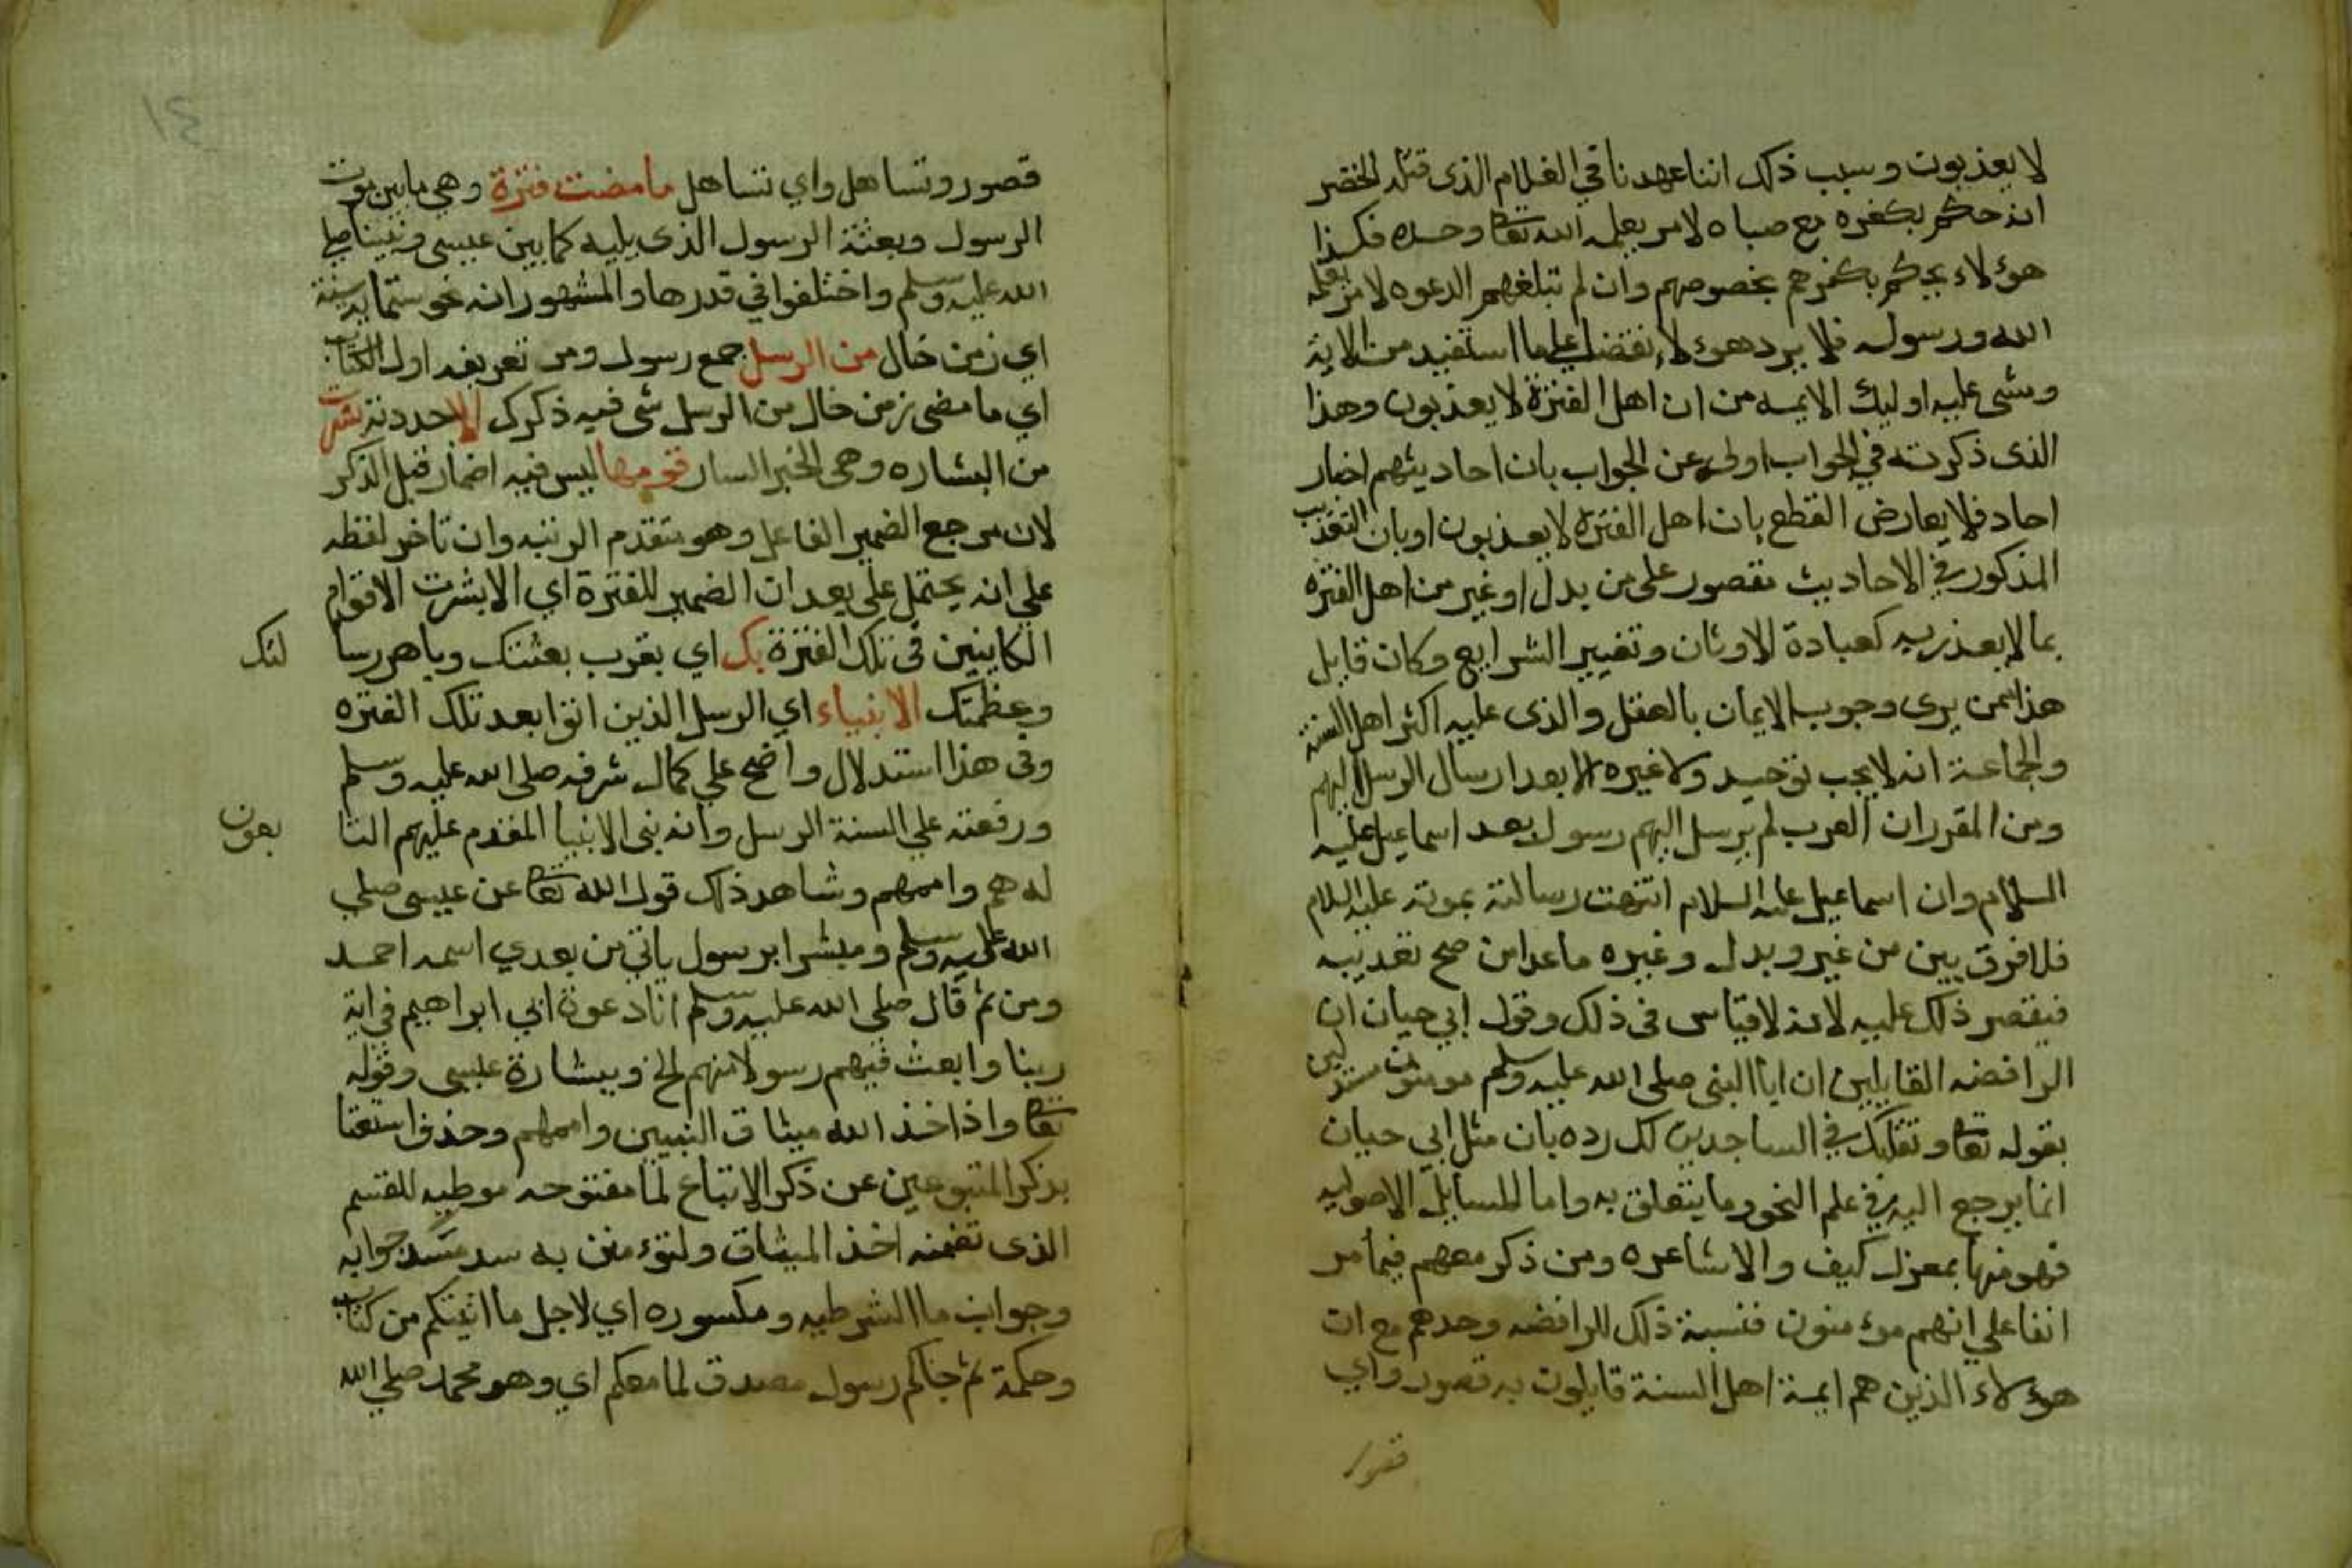 لا يعذبون وسبب ذلك اننا عهدنا في الغلام الذي قتله الخضر
انه حكم بكفره مع صباه لامر يعلمه الله تعا وحده فكذا
هؤلاء يحكم بكفرهم بخصوصهم وان لم تبلغهم الدعوه لامر يعلمه
الله ورسوله فلا يرد هؤلاء نقضا علي ما استفيد من الاية
ومشى عليه اوليك الايمه من ان اهل الفترة لا يعذبون وهذا
الذي ذكرته في الجواب اولى من الجواب بان احاديثهم اخبار
احاد فلا يعارض القطع بان اهل الفترة لا يعذبون او بان التعذيب
المذكور في الاحاديث مقصور على من بدل او غير من اهل الفتره
بما لا يعذر به كعبادة الاوثان وتغيير الشرايع وكان قايل
هذا ممن يرى وجوب الايمان بالعقل والذي عليه اكثر اهل السنة
والجماعة انه لا يجب توحيد ولا غيره الا بعد ارسال الرسل اليهم
ومن المقرر ان العرب لم يرسل اليهم رسول بعد اسماعيل عليه
السلام وان اسماعيل عليه السلام انتهت رسالته بموته عليه السلام
فلا فرق بين من غير وبدل وغيره ما عدا من صح تعذيبه
فيقصر ذلك عليه لانه لا قياس في ذلك وقول ابي حيان ان
الرافضه القايلين ان ابا النبي صلى الله عليه وسلم مومنون مستدلين
بقوله تعا وتقلبك في الساجدين لك رده بان مثل ابي حيان
انما يرجع اليه في علم النحو وما يتعلق به واما المسايل الاصوليه
فهو منها بمعزل كيف والاشاعره ومن ذكر معهم فيما مر
انفا علي انهم مؤمنون فنسبة ذلك للرافضه وحدهم مع ان
هؤلاء الذين هم ايمة اهل السنة قايلون به قصور واي
قصور
١٤
قصور وتساهل واي تساهل ما مضت فترة وهي ما بين موت
الرسول وبعثة الرسول الذي يليه كما بين عيسى ونبينا صلى
الله عليه وسلم واختلفوا في قدرها والمشهور انه نحو ستماية سنة
اي زمن خال من الرسل جمع رسول ومر تعريفه اول الكتاب
اي ما مضى زمن خال من الرسل شي فيه ذكرك الا جددته بشرت
من البشاره وهي الخبر السار قومها ليس فيه اضمار قبل الذكر
لان مرجع الضمير الفاعل وهو متقدم الرتبه وان تاخر لفظه
علي انه يحتمل على بعد ان الضمير للفترة اي الا بشرت الاقوام
الكاينين في تلك الفترة بك اي بقرب بعثتك وباهر رسا
لتك
وعظمتك الانبياء اي الرسل الذين اتوا بعد تلك الفتره
وفى هذا استدلال واضح علي كمال شرفه صلى الله عليه وسلم
ورفعته علي السنة الرسل وانه نبى الانبيا المقدم عليهم التا
بعون
له هم واممهم وشاهد ذلك قول الله تعا عن عيسى صلى
الله عليه وسلم ومبشرا برسول ياتي من بعدي اسمه احمد
ومن ثم قال صلى الله عليه وسلم انا دعوة ابي ابراهيم في اية
ربنا وابعث فيهم رسولا منهم الخ وبشارة عيسى وقوله
تعا واذ اخذ الله ميثاق النبيين واممهم وحذف استغنا
بذكر المتبوعين عن ذكر الاتباع لما مفتوحه موطيه للقسم
الذي تضمنه اخذ الميثاق ولتؤمنن به سد مسد جوابه
وجواب ما الشرطيه ومكسوره اي لاجل ما اتيتكم من كتاب
وحكمة ثم جاكم رسول مصدق لما معكم اي وهو محمد صلى الله